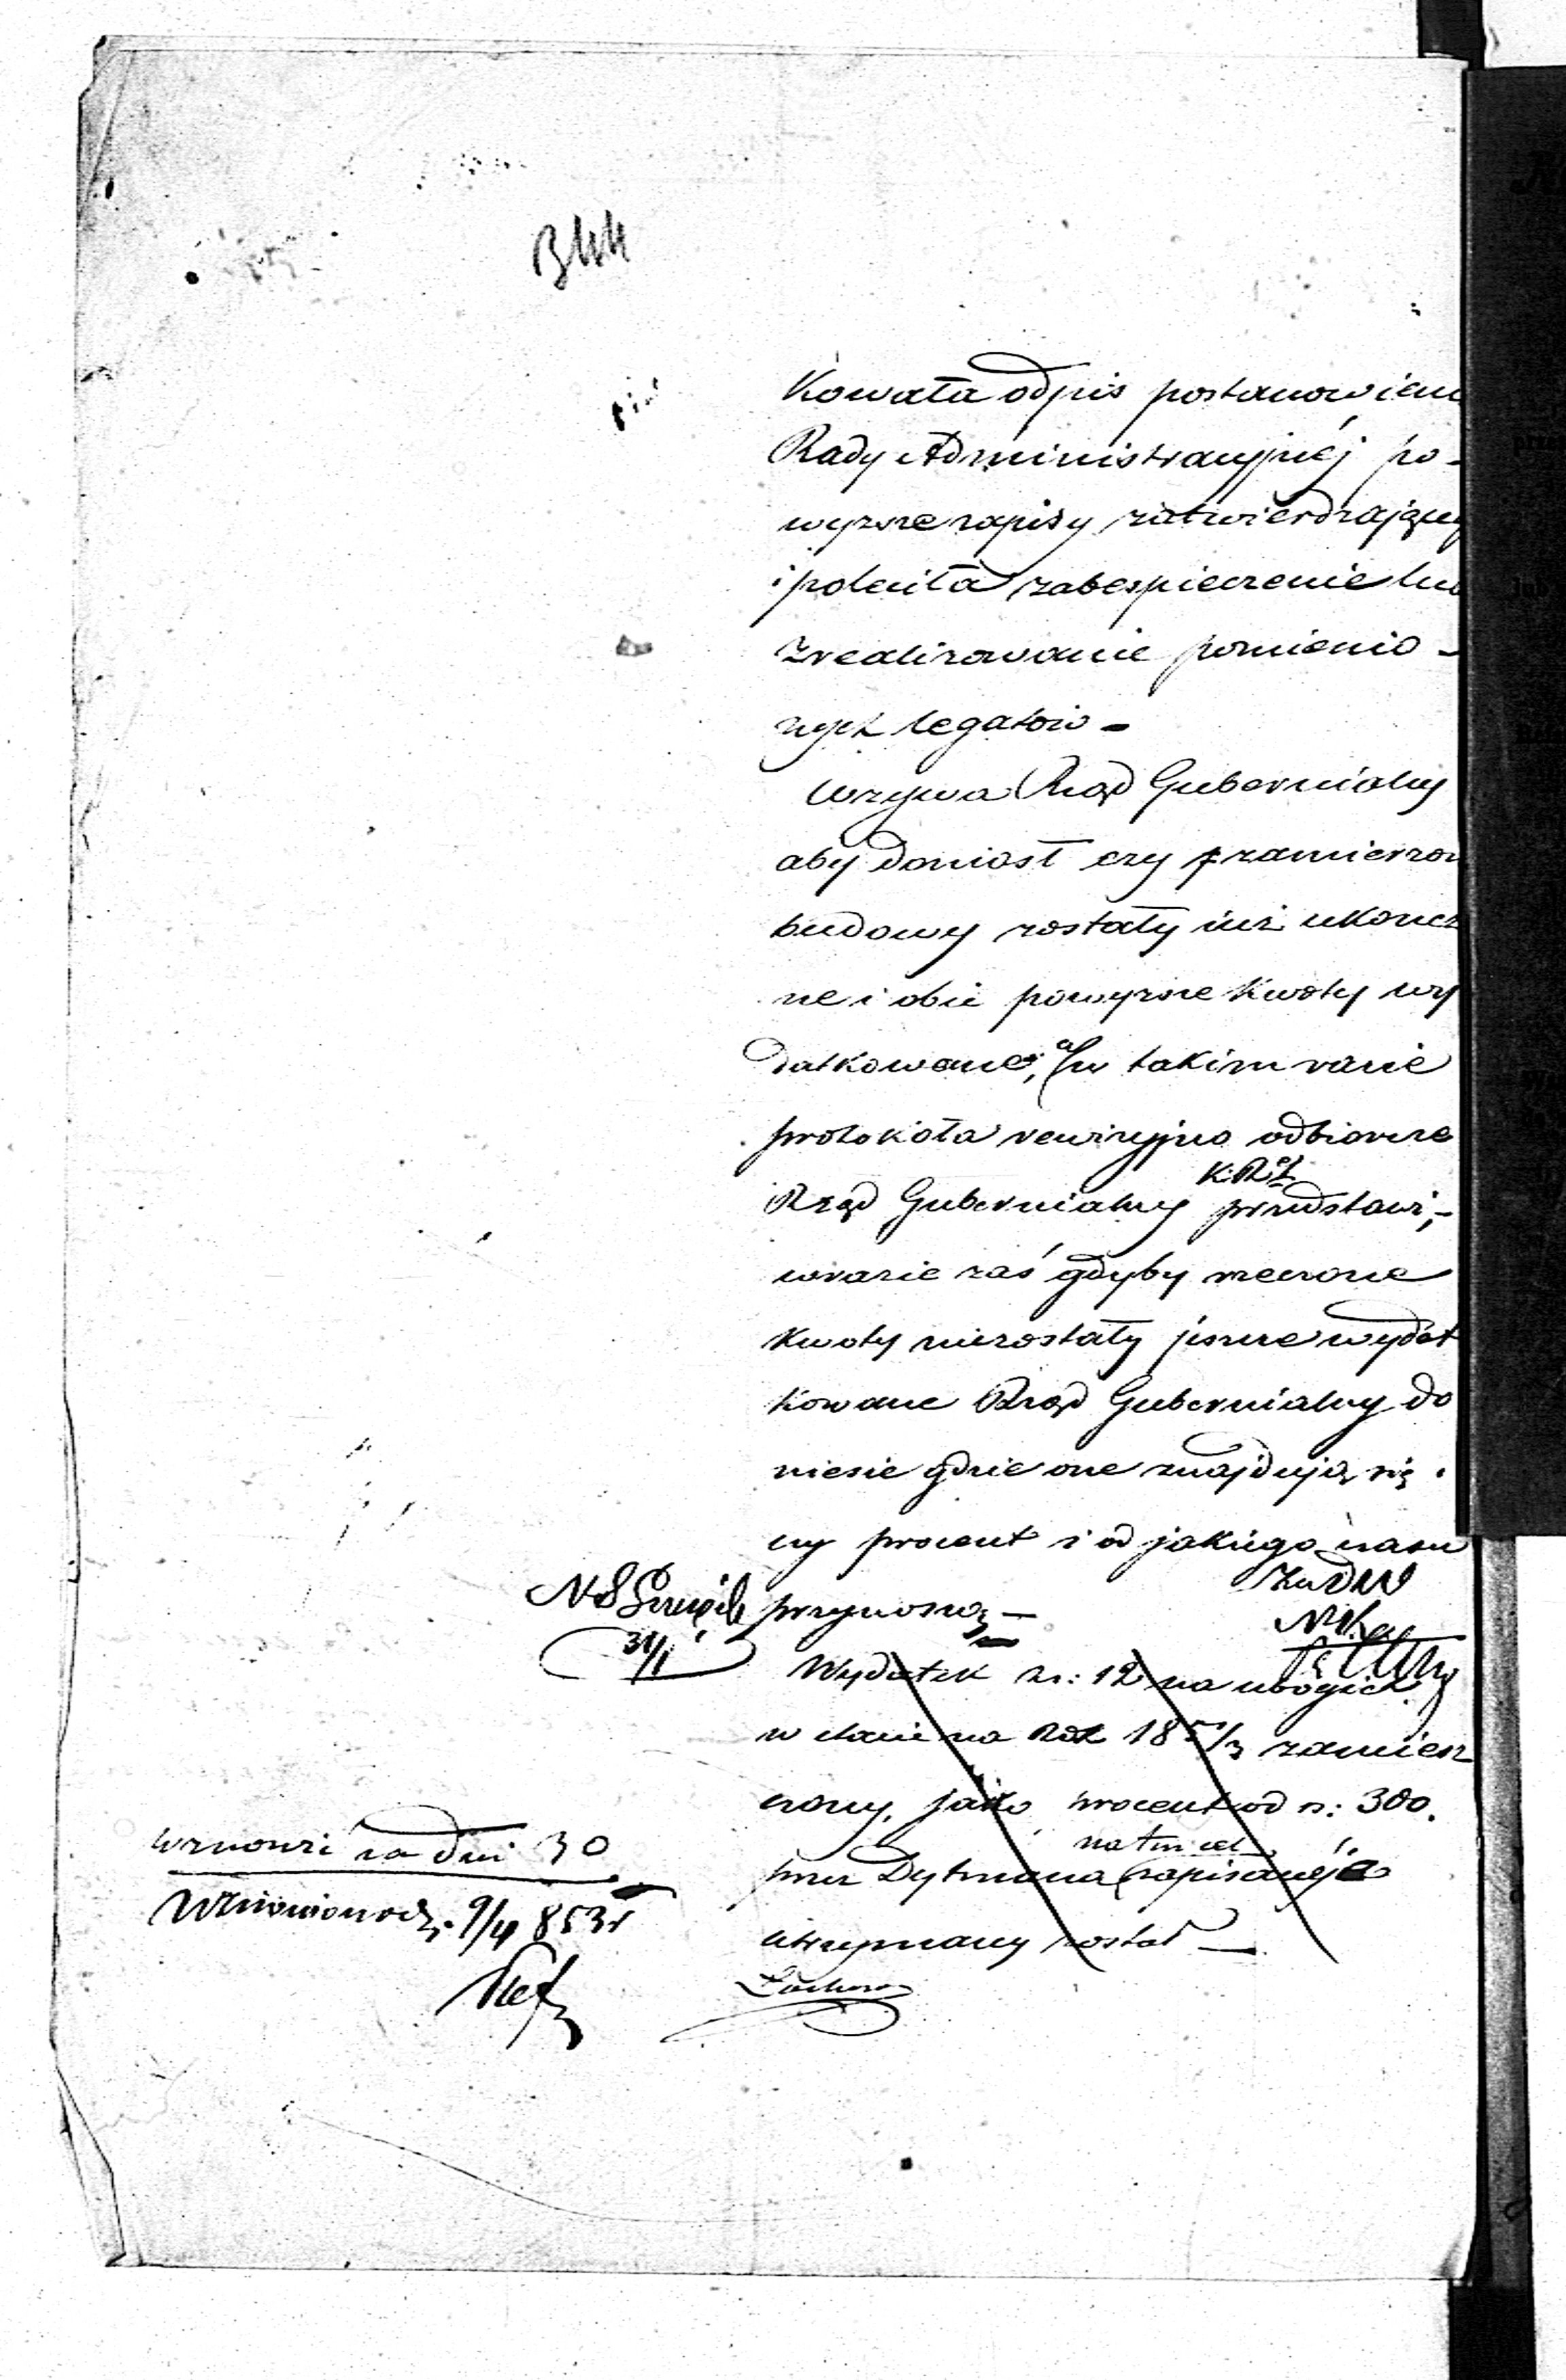 kowała odpis postanowien
Rady Administracyjnéj po-
wyzsze zapisy zatwierdzający
i poleciła zabespieczenie lub
zrealizowanie pomienio-
nych legatów -
Wzywa Rząd Gubernialny
aby doniosł czy zamierzon
budowy zostały iuż ukoncz
ne i obie powyzsze kwoty wy
datkowane, a w takim razie
protokoła rewizyjno odbiorcze
K. R.
Rząd Gubernialny przedstawi,-
w razie zaś gdyby rzeczone
kwoty niezostały jeszcze wydat
kowane Rząd Gubernialny do
niesie gdzie one znajdują się
czy procent i od jakiego czasu
przynoszą -
31/1
Wydatek rs: 12 na ubogich
w etacie na Rok 185 1/3 zamiesz
czony, jako procent od rs: 300.
na ten cel
przez Dytmana zapisanej
utrzymany został -
wznowić za dni 30
Wznowiono d. 9/4 853 r